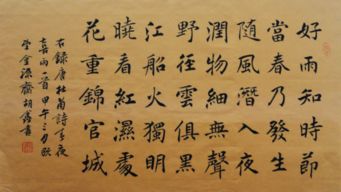 好雨知時節
當春乃發生
隨風潛入夜
潤物細無聲
野徑雲俱黑
江船火獨明
曉看紅濕處
花重錦官城
右錄唐杜甫詩春夜
喜雨一首甲午三月